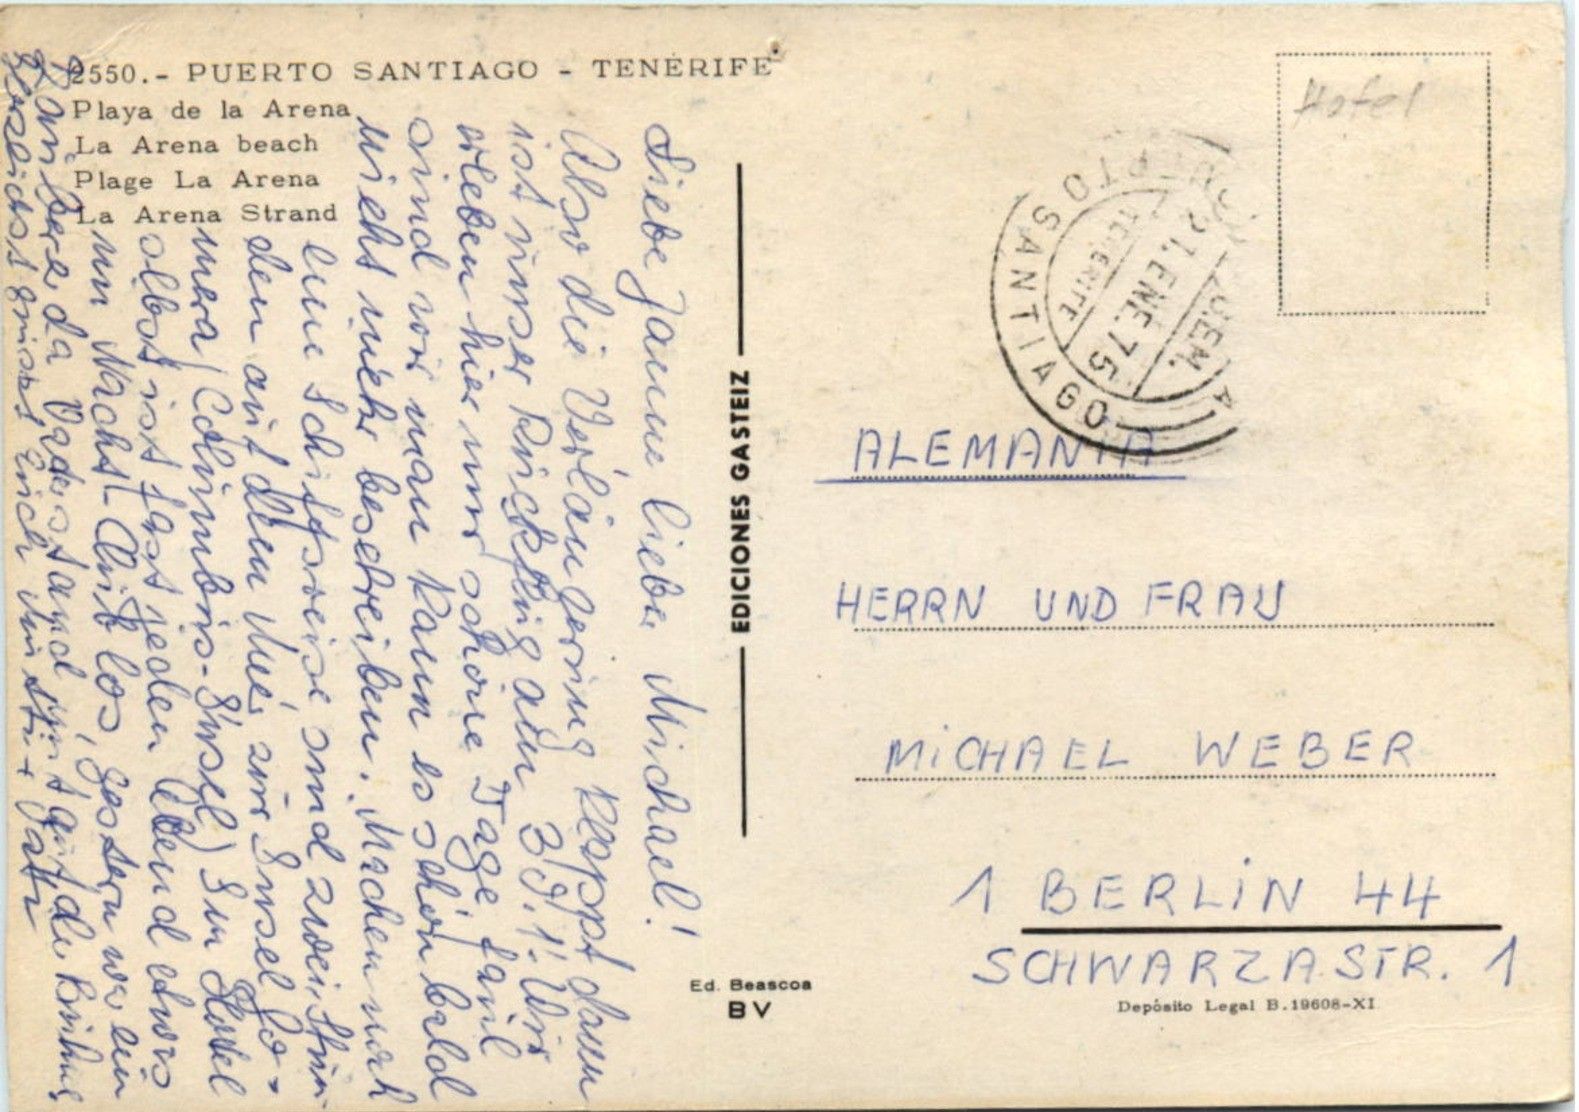 2550.- PUERTO SANTIAGO - TENERIFE
Playa de la Arena
La Arena beach
Plage La Arena
La Arena Strand
Liebe Janne lieber Michael!
Also die Verlängerung klappt dann
ist unser Rückflug am 30.1. Wir
erleben hier nur schöne Tage
sind wir man kann es schon bald
nicht mehr beschreiben. Machen noch
eine Schiffsreise sind zwei Stun
den auf dem Meer zur Insel Go-
mera (Columbus-Insel) Im Hotel
selbst ist fast jeden Abend etwas
im Nacht-Club los, gestern war ein
da Vader stand mit auf der Bühne
Herzlichst grüsst Euch
EDICIONES GASTEIZ
Ed. Beascoa
BV
Hotel
PUERTO SANTIAGO
TENERIFE
21.ENE.75
ALEMANIA
HERRN UND FRAU
MiCHAEL WEBER
1 BERLiN 44
SCHWARZASTR. 1
Depósito Legal B.19608-XI